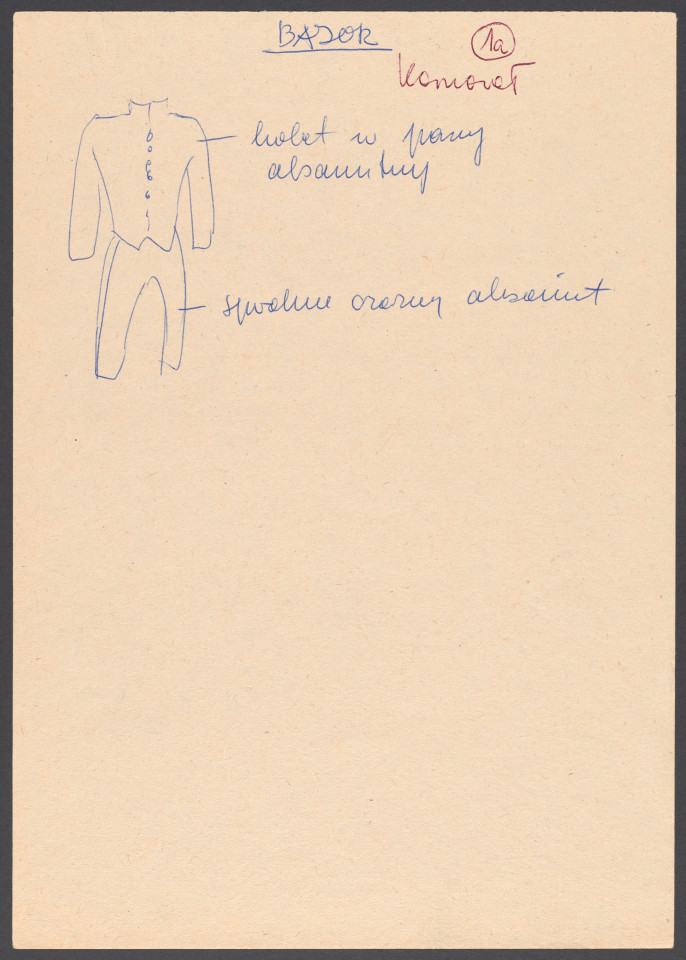 BAJOR
1a
Komorot
kolet w pasy
aksamitny
spodnie czarny aksamit